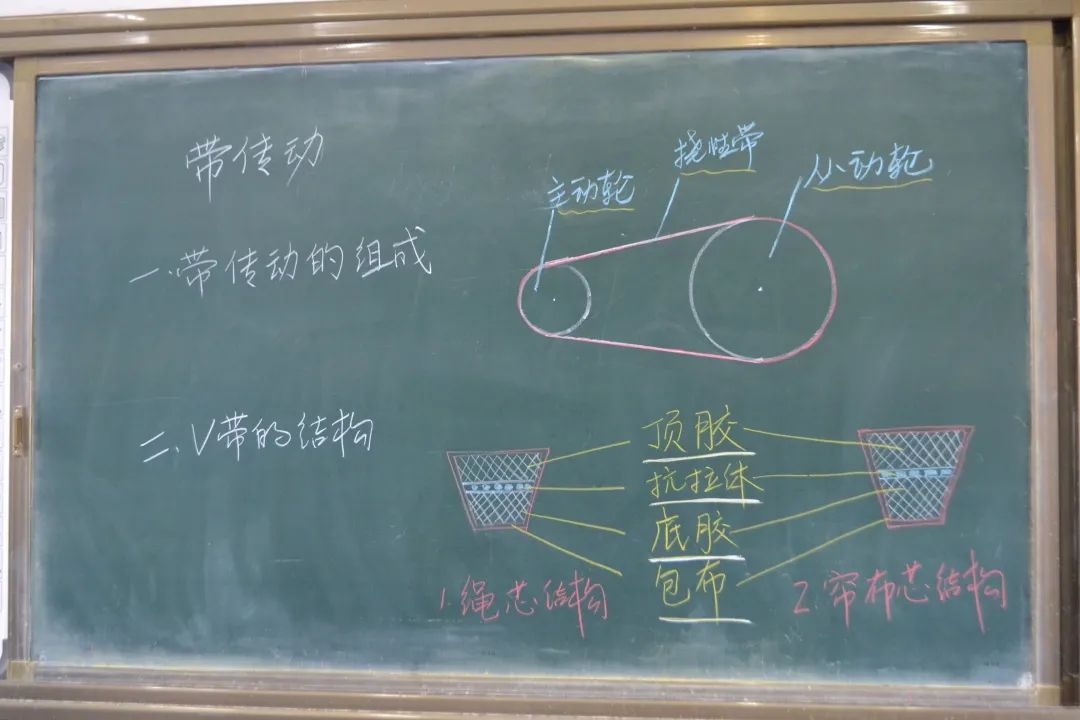 带传动
一.带传动的组成
主动轮
挠性带
从动轮
二.V带的结构
顶胶
抗拉体
底胶
包布
1.绳芯结构
2.帘布芯结构